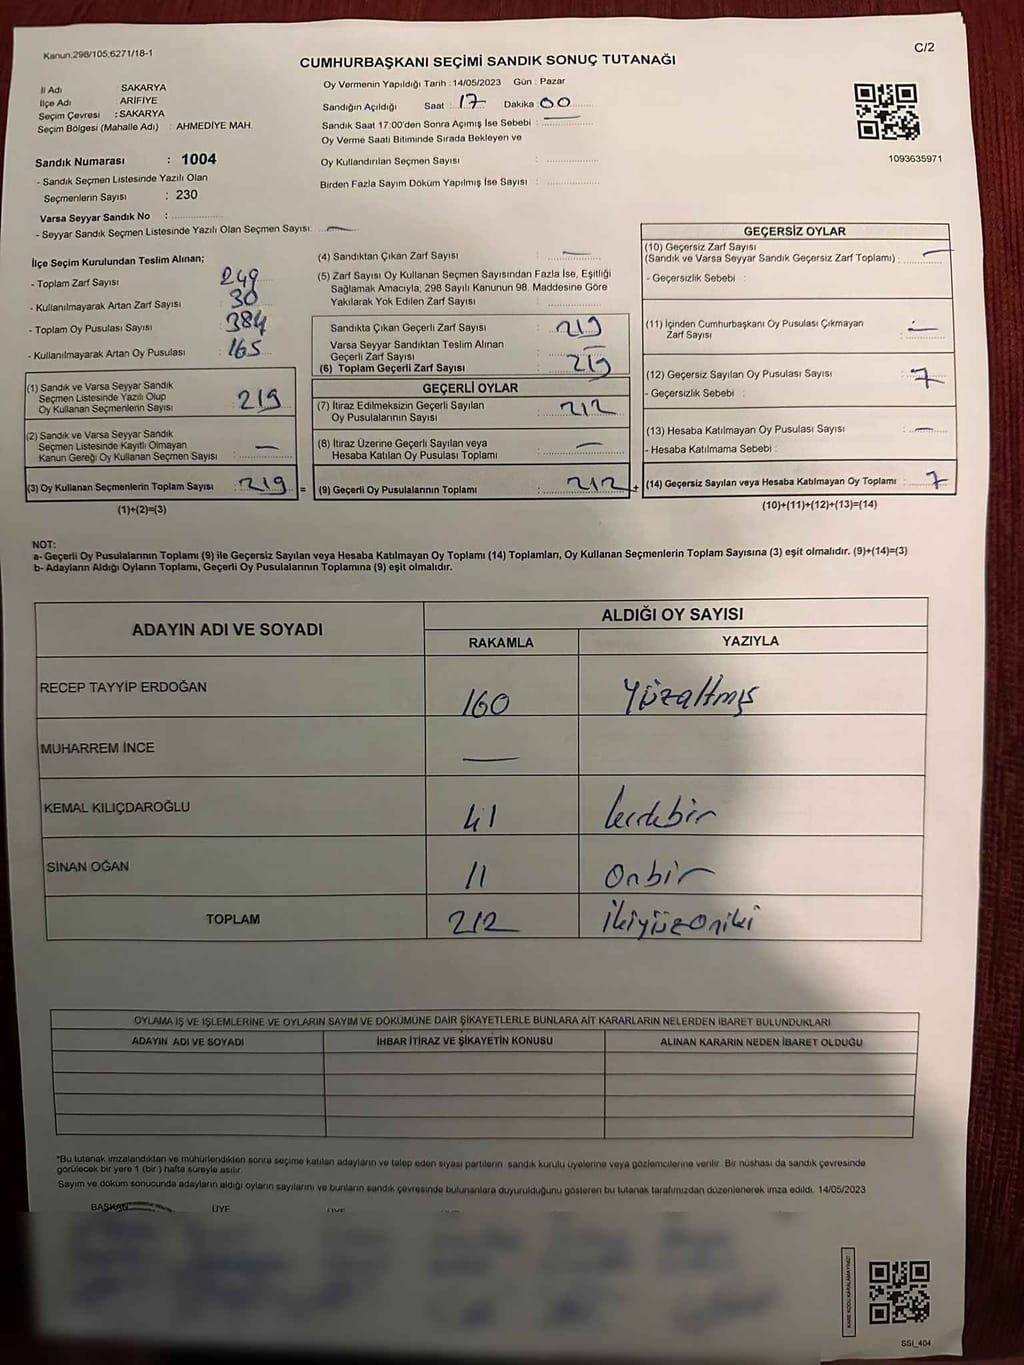 Kanun:298/105;6271/18-1
C/2
CUMHURBAŞKANI SEÇİMİ SANDIK SONUÇ TUTANAĞI
İl Adı SAKARYA
İlçe Adı ARİFİYE
Seçim Çevresi : SAKARYA
Seçim Bölgesi (Mahalle Adı) : AHMEDİYE MAH.
Sandık Numarası : 1004
- Sandık Seçmen Listesinde Yazılı Olan
Seçmenlerin Sayısı : 230
Varsa Seyyar Sandık No :
- Seyyar Sandık Seçmen Listesinde Yazılı Olan Seçmen Sayısı: —
Oy Vermenin Yapıldığı Tarih : 14/05/2023 Gün : Pazar
Sandığın Açıldığı Saat : 17 Dakika : 00
Sandık Saat 17:00'den Sonra Açımış İse Sebebi : —
Oy Verme Saati Bitiminde Sırada Bekleyen ve
Oy Kullandırılan Seçmen Sayısı :
Birden Fazla Sayım Döküm Yapılmış İse Sayısı :
1093635971
İlçe Seçim Kurulundan Teslim Alınan;
- Toplam Zarf Sayısı : 249
- Kullanılmayarak Artan Zarf Sayısı : 30
- Toplam Oy Pusulası Sayısı : 384
- Kullanılmayarak Artan Oy Pusulası : 165
(1) Sandık ve Varsa Seyyar Sandık
Seçmen Listesinde Yazılı Olup
Oy Kullanan Seçmenlerin Sayısı : 219
(2) Sandık ve Varsa Seyyar Sandık
Seçmen Listesinde Kayıtlı Olmayan
Kanun Gereği Oy Kullanan Seçmen Sayısı : —
(3) Oy Kullanan Seçmenlerin Toplam Sayısı : 219 =
(1)+(2)=(3)
(4) Sandıktan Çıkan Zarf Sayısı : —
(5) Zarf Sayısı Oy Kullanan Seçmen Sayısından Fazla İse, Eşitliği
Sağlamak Amacıyla; 298 Sayılı Kanunun 98. Maddesine Göre
Yakılarak Yok Edilen Zarf Sayısı :
Sandıkta Çıkan Geçerli Zarf Sayısı : 219
Varsa Seyyar Sandıktan Teslim Alınan
Geçerli Zarf Sayısı : —
(6) Toplam Geçerli Zarf Sayısı : 219
GEÇERLİ OYLAR
(7) İtiraz Edilmeksizin Geçerli Sayılan
Oy Pusulalarının Sayısı : 212
(8) İtiraz Üzerine Geçerli Sayılan veya
Hesaba Katılan Oy Pusulası Toplamı : —
(9) Geçerli Oy Pusulalarının Toplamı : 212 +
GEÇERSİZ OYLAR
(10) Geçersiz Zarf Sayısı
(Sandık ve Varsa Seyyar Sandık Geçersiz Zarf Toplamı) : —
- Geçersizlik Sebebi :
(11) İçinden Cumhurbaşkanı Oy Pusulası Çıkmayan
Zarf Sayısı : —
(12) Geçersiz Sayılan Oy Pusulası Sayısı : 7
- Geçersizlik Sebebi :
(13) Hesaba Katılmayan Oy Pusulası Sayısı : —
- Hesaba Katılmama Sebebi :
(14) Geçersiz Sayılan veya Hesaba Katılmayan Oy Toplamı : 7
(10)+(11)+(12)+(13)=(14)
NOT:
a- Geçerli Oy Pusulalarının Toplamı (9) ile Geçersiz Sayılan veya Hesaba Katılmayan Oy Toplamı (14) Toplamları, Oy Kullanan Seçmenlerin Toplam Sayısına (3) eşit olmalıdır. (9)+(14)=(3)
b- Adayların Aldığı Oyların Toplamı, Geçerli Oy Pusulalarının Toplamına (9) eşit olmalıdır.
ADAYIN ADI VE SOYADI ALDIĞI OY SAYISI
RAKAMLA YAZIYLA
RECEP TAYYİP ERDOĞAN 160 Yüzaltmış
MUHARREM İNCE —
KEMAL KILIÇDAROĞLU 41
SİNAN OĞAN 11 Onbir
TOPLAM 212 İkiyüzoniki
OYLAMA İŞ VE İŞLEMLERİNE VE OYLARIN SAYIM VE DÖKÜMÜNE DAİR ŞİKAYETLERLE BUNLARA AİT KARARLARIN NELERDEN İBARET BULUNDUKLARI
ADAYIN ADI VE SOYADI İHBAR İTİRAZ VE ŞİKAYETİN KONUSU ALINAN KARARIN NEDEN İBARET OLDUĞU
*Bu tutanak imzalandıktan ve mühürlendikten sonra seçime katılan adayların ve talep eden siyasi partilerin sandık kurulu üyelerine veya gözlemcilerine verilir. Bir nüshası da sandık çevresinde
görülecek bir yere 1 (bir ) hafta süreyle asılır.
Sayım ve döküm sonucunda adayların aldığı oyların sayılarını ve bunların sandık çevresinde bulunanlara duyurulduğunu gösteren bu tutanak tarafımızdan düzenlenerek imza edildi. 14/05/2023
BAŞKAN ÜYE ÜYE
KARE KODU KARALAMAYINIZ!
SSI_404